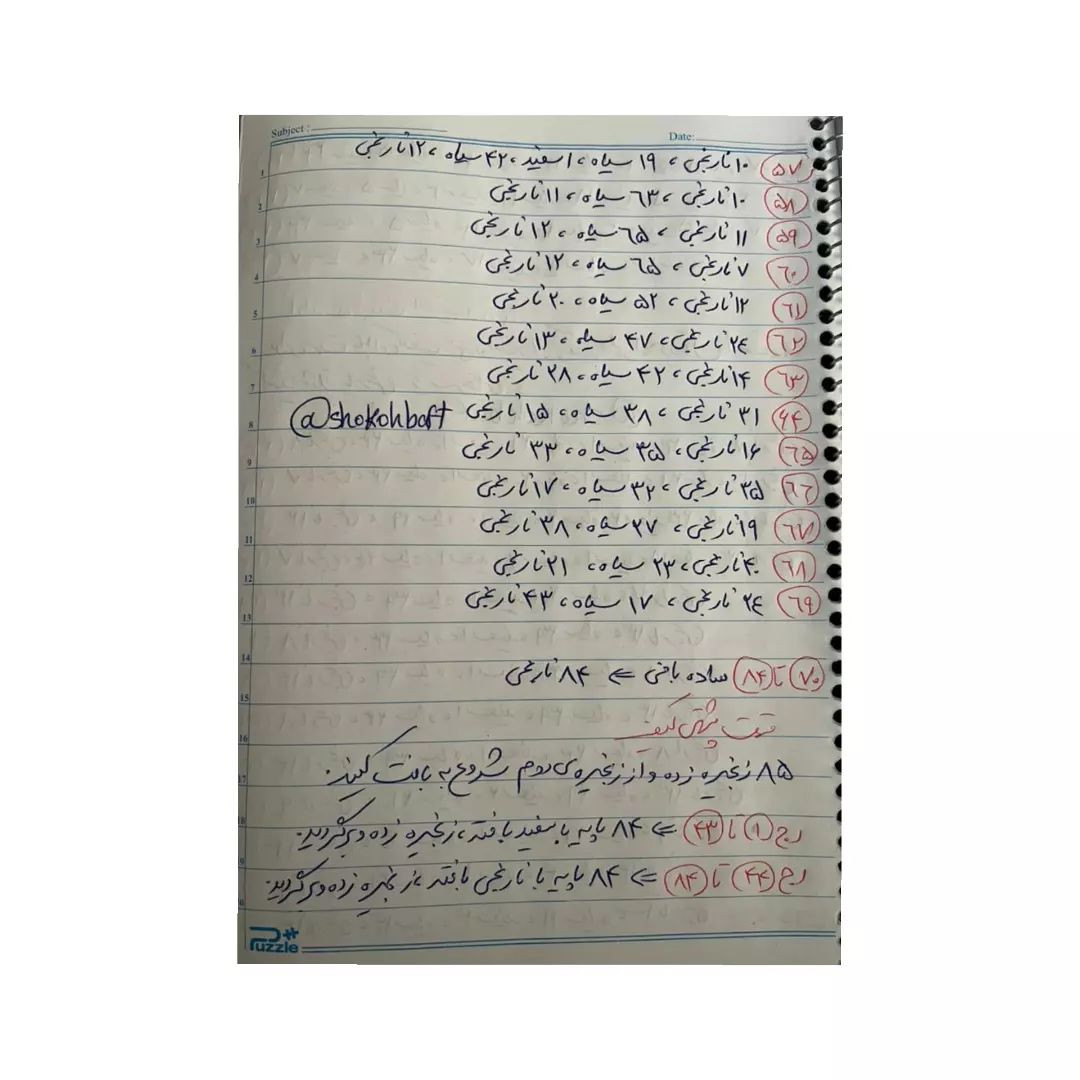 Subject:
Date:
۵۷ ۱۰ نارنجی، ۱۹ سیاه، ۱ سفید، ۴۲ سیاه، ۱۲ نارنجی
۵۸ ۱۰ نارنجی، ۶۳ سیاه، ۱۱ نارنجی
۵۹ ۱۱ نارنجی، ۶۵ سیاه، ۱۲ نارنجی
۶۰ ۷ نارنجی، ۶۵ سیاه، ۱۲ نارنجی
۶۱ ۱۲ نارنجی، ۵۲ سیاه، ۲۰ نارنجی
۶۲ ۲۴ نارنجی، ۴۷ سیاه، ۱۳ نارنجی
۶۳ ۱۴ نارنجی، ۴۲ سیاه، ۲۸ نارنجی
۶۴ ۳۱ نارنجی، ۳۸ سیاه، ۱۵ نارنجی @shokohbaft
۶۵ ۱۶ نارنجی، ۳۵ سیاه، ۳۳ نارنجی
۶۶ ۳۵ نارنجی، ۳۲ سیاه، ۱۷ نارنجی
۶۷ ۱۹ نارنجی، ۲۷ سیاه، ۳۸ نارنجی
۶۸ ۴۰ نارنجی، ۲۳ سیاه، ۲۱ نارنجی
۶۹ ۲۴ نارنجی، ۱۷ سیاه، ۴۳ نارنجی
۷۰ تا ۸۴ ساده بافی ⇐ ۸۴ نارنجی
قسمت پشتی کیف
۸۵ زنجیره زده و از زنجیره‌ی دوم شروع به بافت کنید.
رج ۱ تا ۴۳ ⇐ ۸۴ پایه با سفید بافته، زنجیره زده و برگردید.
رج ۴۴ تا ۸۴ ⇐ ۸۴ پایه با نارنجی بافته، زنجیره زده و برگردید.
Puzzle